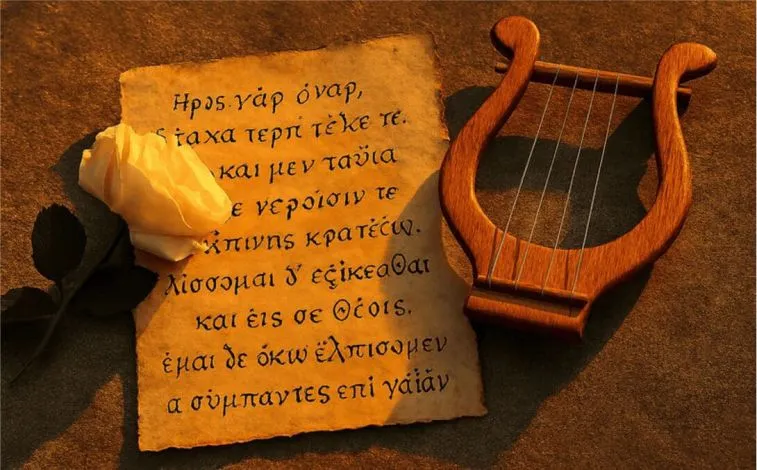 Ηρος γὰρ όναρ,
ταχα τερπ τὲκε τε.
και μεν ταῢια
νεροίσιν τε
κρατέςω.
λίσσομαι δ' εξίκεαθαι
και έις σε Θέοις.
έμαι δε όκω ἔλπισομεν
α σὺμπαντες επὶ γάϊᾶν